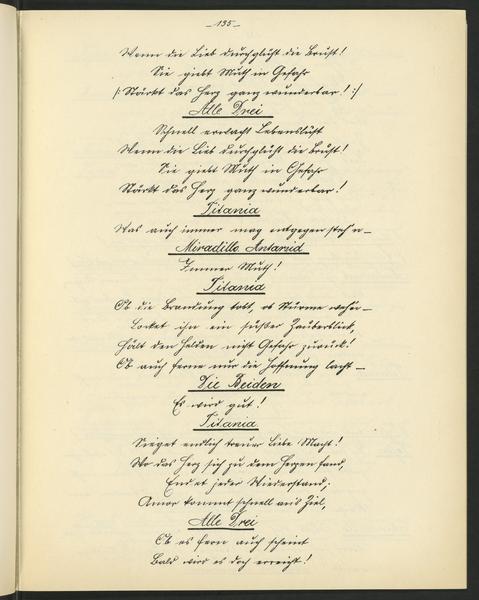 —135—
Wenn die Lieb durchglüht die Brust!
Sie giebt Muth in Gefahr
/: Stärkt das Herz ganz wunderbar! :/
Alle Drei
Schnell erwacht Lebenslust
Wenn die Lieb durchglüht die Brust!
Sie giebt Muth in Gefahr
Stärkt das Herz ganz wunderbar!
Titania
Was auch immer mag entgegen steh'n—
Miradillo. Antarsid
Immer Muth!
Titania
Ob die Brandung tobt, ob Stürme weh'n—
Locket ihn ein süßer Zauberblick,
Hält den Helden nicht Gefahr zurück!
Ob auch ferne nur die Hoffnung lacht—
Die Beiden
Es wird gut!
Titania
Sieget endlich treuer Liebe Macht!
Wo das Herz sich zu dem Herzen fand,
Endet jeder Wiederstand;
Amor kommt schnell ans Ziel,
Alle Drei
Ob es fern auch scheint
Bald wird es doch erreicht!